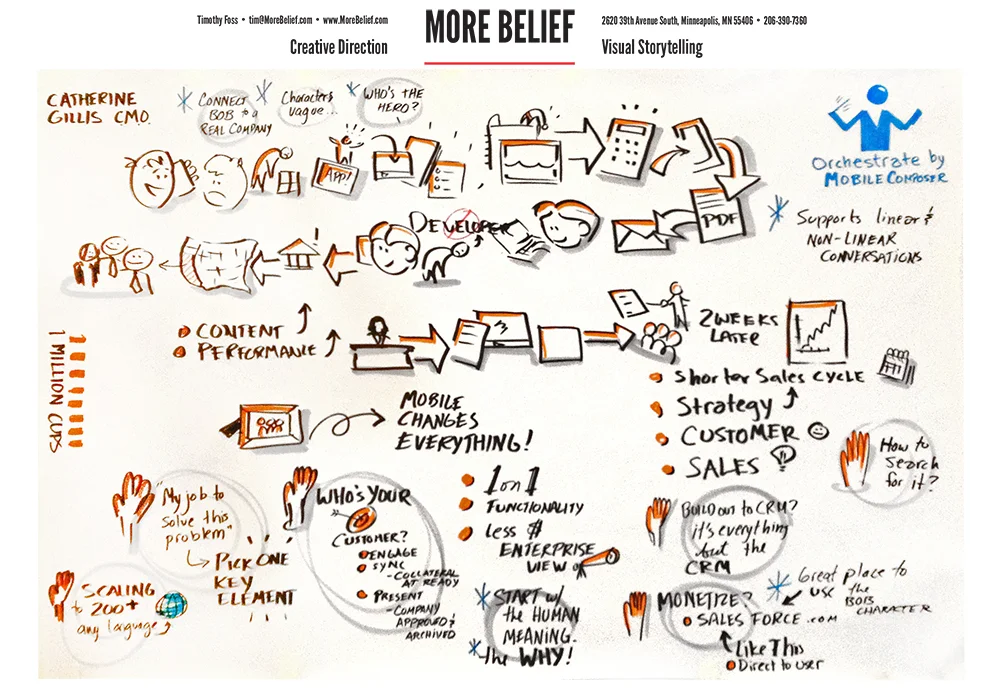 Timothy Foss • tim@MoreBelief.com • www.MoreBelief.com
Creative Direction
MORE BELIEF
2620 39th Avenue South, Minneapolis, MN 55406 • 206-390-7360
Visual Storytelling
CATHERINE
GILLIS CMO.
CONNECT
BOB to a
REAL COMPANY
Characters
vague...
WHO'S THE
HERO?
APP!
Orchestrate by
MOBILE COMPOSER
PDF
Supports linear &
NON-LINEAR
CONVERSATIONS
DEVELOPER
CONTENT
PERFORMANCE
2 WEEKS
LATER
1 MILLION CUPS
Shorter Sales CYCLE
Strategy
CUSTOMER
SALES
MOBILE
CHANGES
EVERYTHING!
How to
Search
for it?
"My job to
Solve this
problem"
PICK ONE
KEY
ELEMENT
WHO'S YOUR
CUSTOMER?
ENGAGE
SYNC
-COLLATERAL
AT READY
PRESENT
-COMPANY
APPROVED &
ARCHIVED
1 on 1
FUNCTIONALITY
Less $
ENTERPRISE
VIEW
BUILD OUT to CRM?
it's everything
but the
CRM
SCALING
to 200+
any language
START w/
the HUMAN
MEANING.
the WHY!
MONETIZE?
SALES FORCE.com
Great place to
use the
BOB
CHARACTER
Like This
Direct to user